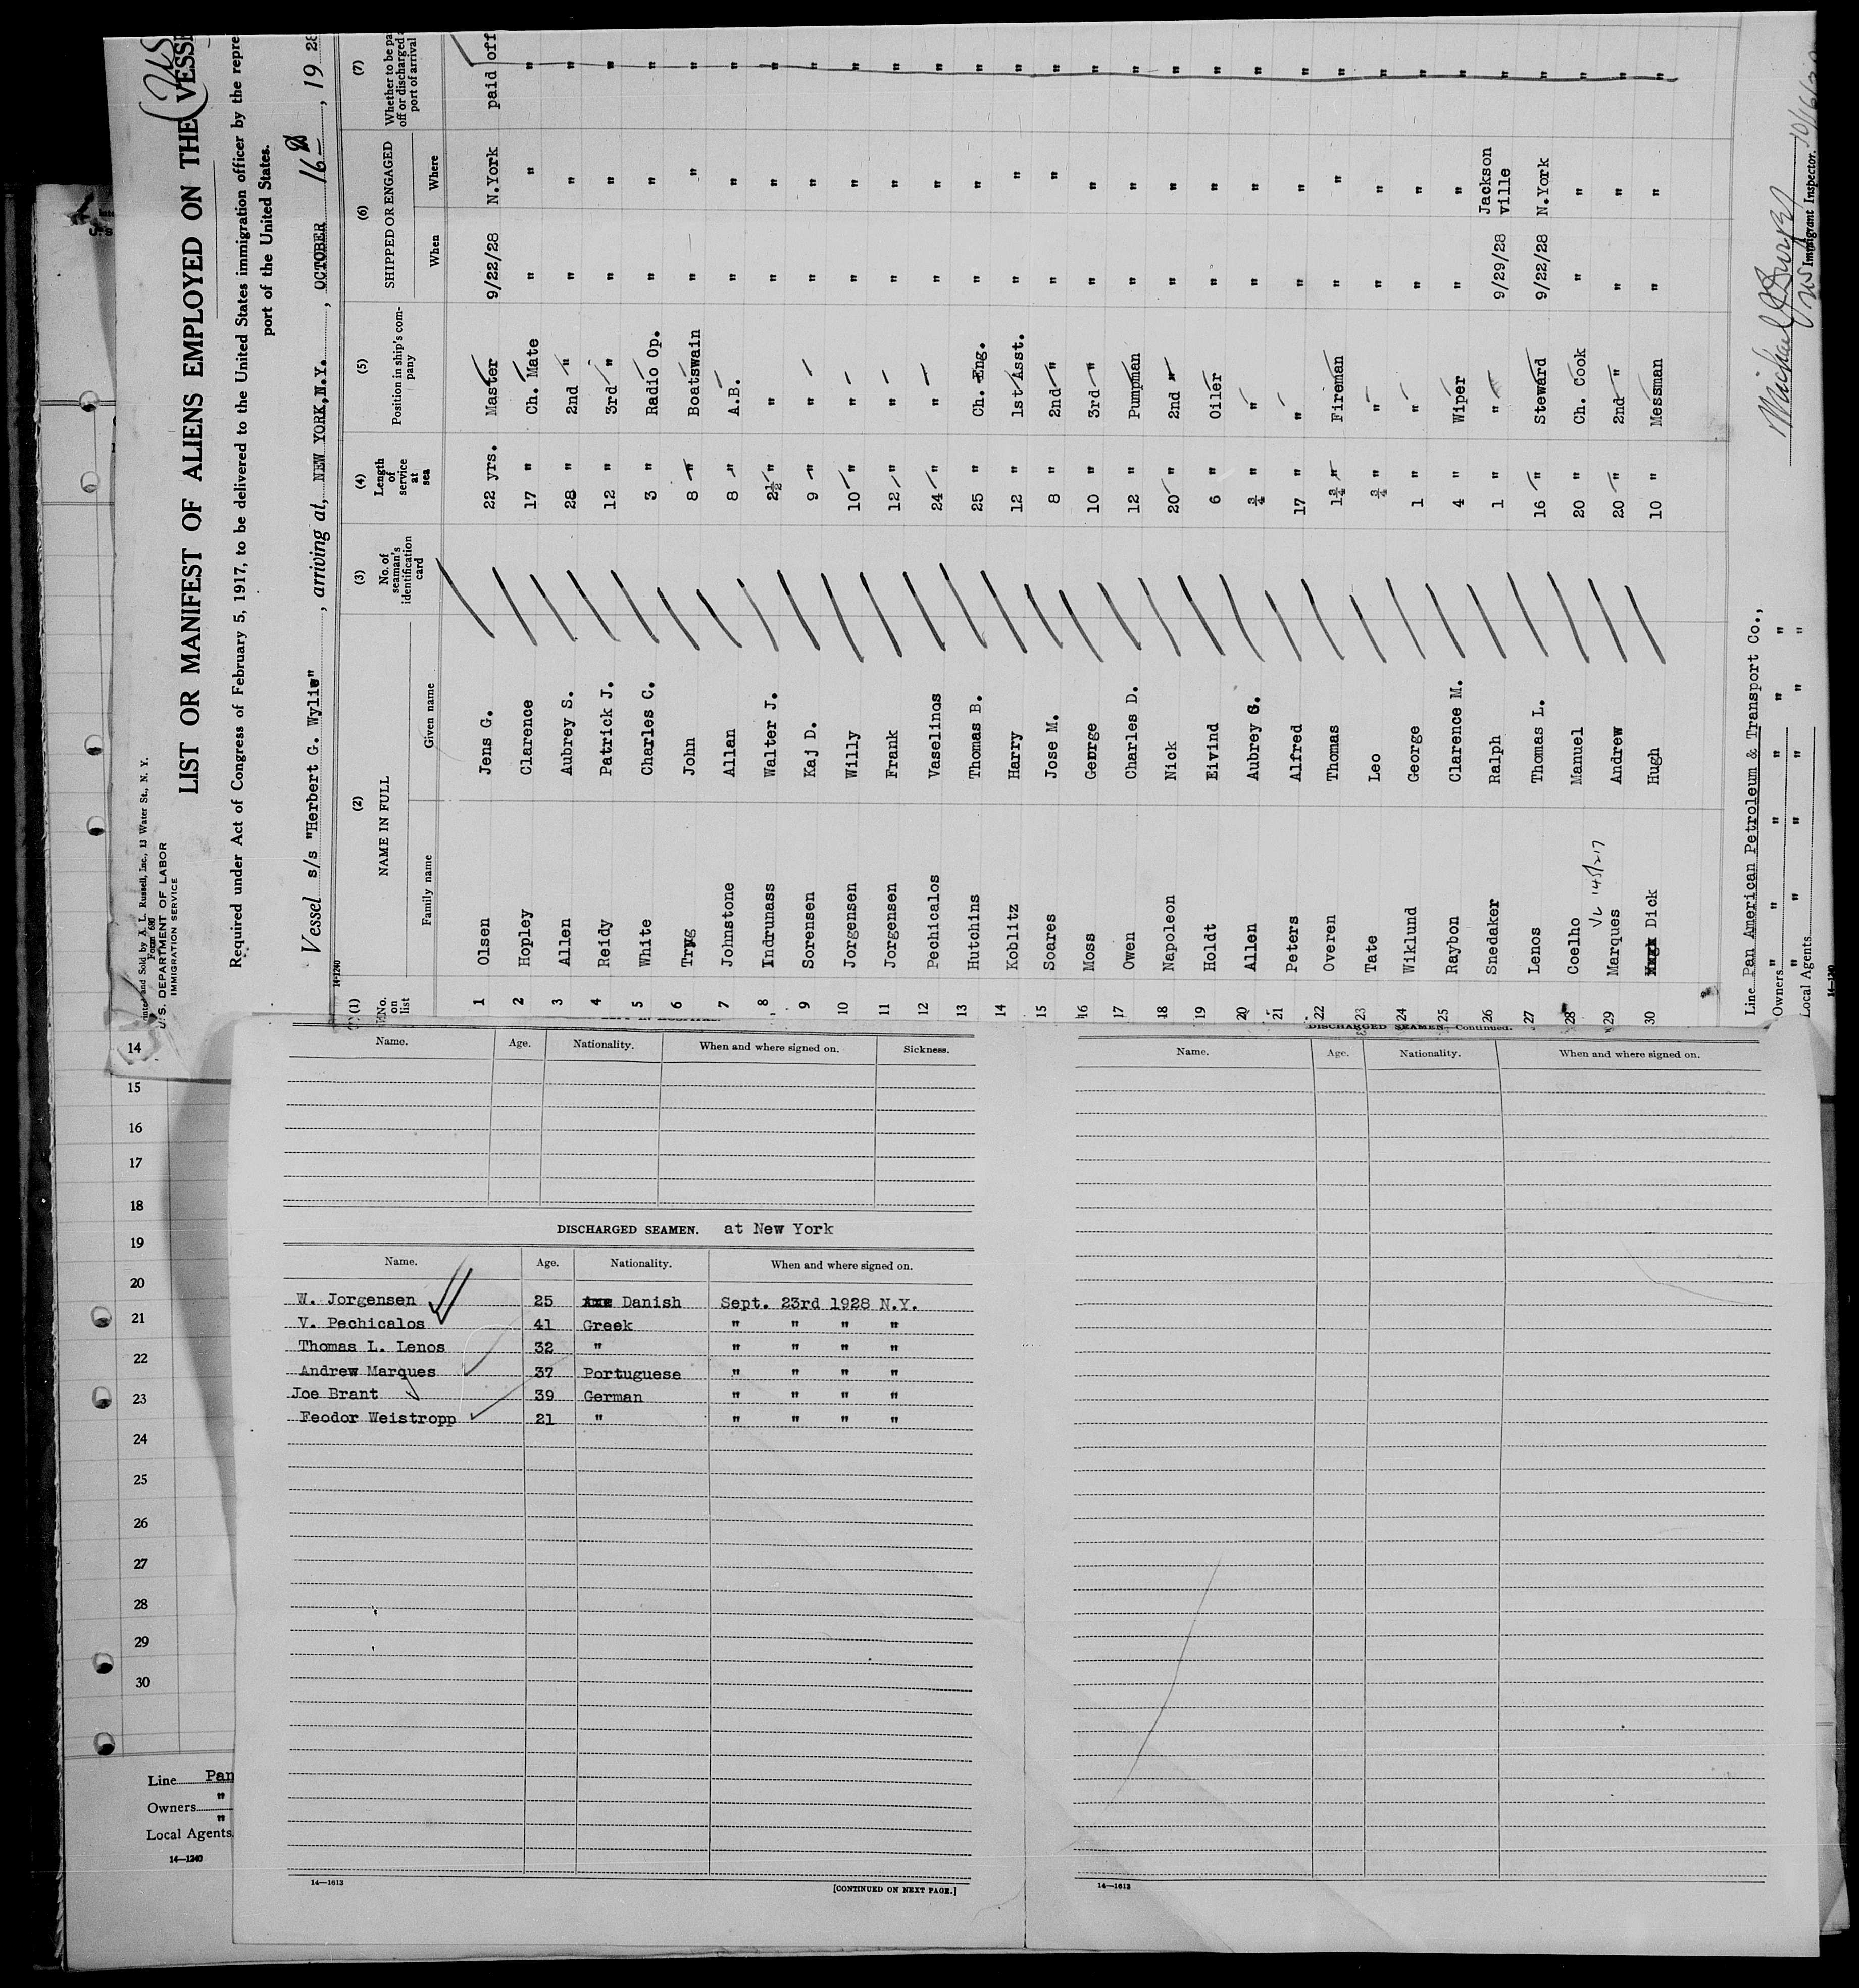 Printed and Sold by A. L. Russell, Inc., 13 Water St., N. Y.
Form 680
U. S. DEPARTMENT OF LABOR
IMMIGRATION SERVICE
LIST OR MANIFEST OF ALIENS EMPLOYED ON THE VESSE
Required under Act of Congress of February 5, 1917, to be delivered to the United States immigration officer by the repre
port of the United States.
Vessel s/s "Herbert G. Wylie", arriving at, NEW YORK, N.Y., OCTOBER 16th, 19 28
14-1240
(1) (2) (3) (4) (5) (6) (7)
No. on list NAME IN FULL No. of seaman's identification card Length of service at sea Position in ship's company SHIPPED OR ENGAGED Whether to be paid off or discharged at port of arrival
Family name Given name When Where
1 Olsen Jens G. 22 yrs. Master 9/22/28 N.York paid off
2 Hopley Clarence 17 " Ch. Mate " " "
3 Allen Aubrey S. 28 " 2nd " " " "
4 Reidy Patrick J. 12 " 3rd " " " "
5 White Charles C. 3 " Radio Op. " " "
6 Tryg John 8 " Boatswain " " "
7 Johnstone Allan 8 " A.B. " " "
8 Indrunass Walter J. 2½ " " " " "
9 Sorensen Kaj D. 9 " " " " "
10 Jorgensen Willy 10 " " " " "
11 Jorgensen Frank 12 " " " " "
12 Pechicalos Vaselinos 24 " " " " "
13 Hutchins Thomas B. 25 " Ch. Eng. " " "
14 Koblitz Harry 12 " 1st Asst. " " "
15 Soares Jose M. 8 " 2nd " " " "
16 Moss George 10 " 3rd " " " "
17 Owen Charles D. 12 " Pumpman " " "
18 Napoleon Nick 20 " 2nd " " " "
19 Holdt Eivind 6 " Oiler " " "
20 Allen Aubrey G. ¾ " " " " "
21 Peters Alfred 17 " " " " "
22 Overen Thomas 1¾ " Fireman " " "
23 Tate Leo ¾ " " " " "
24 Wiklund George 1 " " " " "
25 Raybon Clarence M. 4 " Wiper " " "
26 Snedaker Ralph 1 " " 9/29/28 Jackson ville "
27 Lenos Thomas L. 16 " Steward 9/22/28 N.York "
28 Coelho Manuel 20 " Ch. Cook " " "
29 Marques Andrew 20 " 2nd " " " "
30 Dick Hugh 10 " Messman " " "
Line Pan American Petroleum & Transport Co.,
Owners " " " " "
Local Agents " " " " " "
14-1240
Immigrant Inspector.
14
15
16
17
18
19
20
21
22
23
24
25
26
27
28
29
30
Line Pan
Owners "
Local Agents "
14—1240
Name. Age. Nationality. When and where signed on. Sickness.
DISCHARGED SEAMEN. at New York
Name. Age. Nationality. When and where signed on.
W. Jorgensen 25 Danish Sept. 23rd 1928 N.Y.
V. Pechicalos 41 Greek " " " "
Thomas L. Lenos 32 " " " " "
Andrew Marques 37 Portuguese " " " "
Joe Brant 39 German " " " "
Feodor Weistropp 21 " " " " "
14—1613
[CONTINUED ON NEXT PAGE.]
DISCHARGED SEAMEN—Continued.
Name. Age. Nationality. When and where signed on.
14—1613